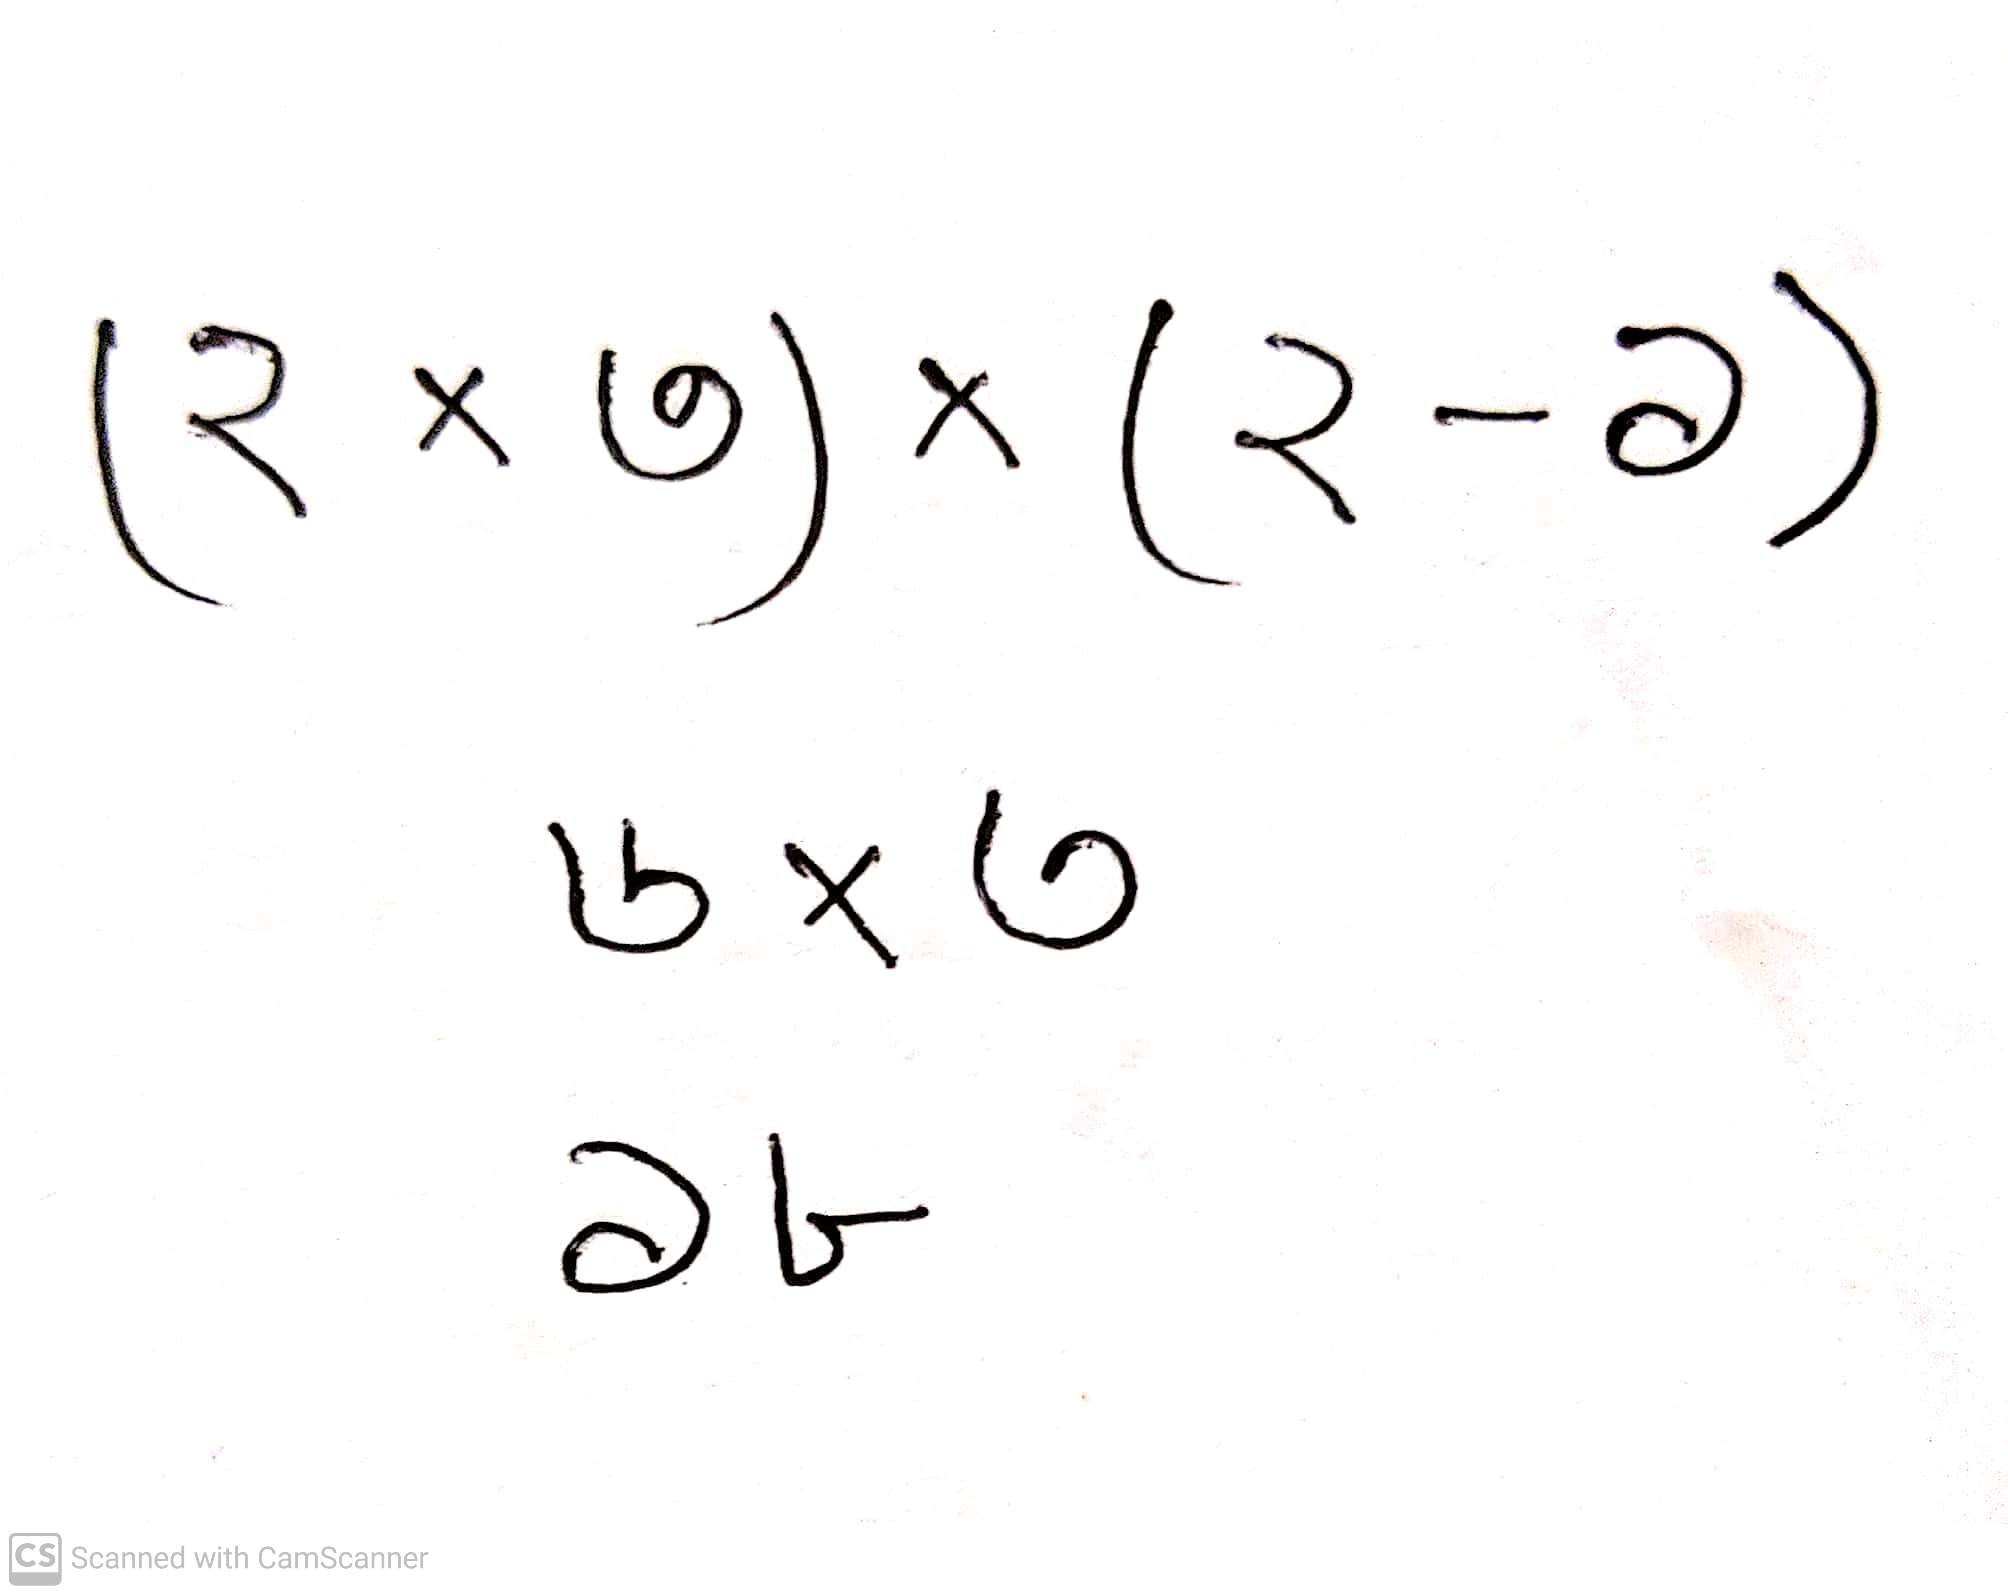 (২ × ৩) × (২ - ১)
৬ × ৩
১৮
CS Scanned with CamScanner